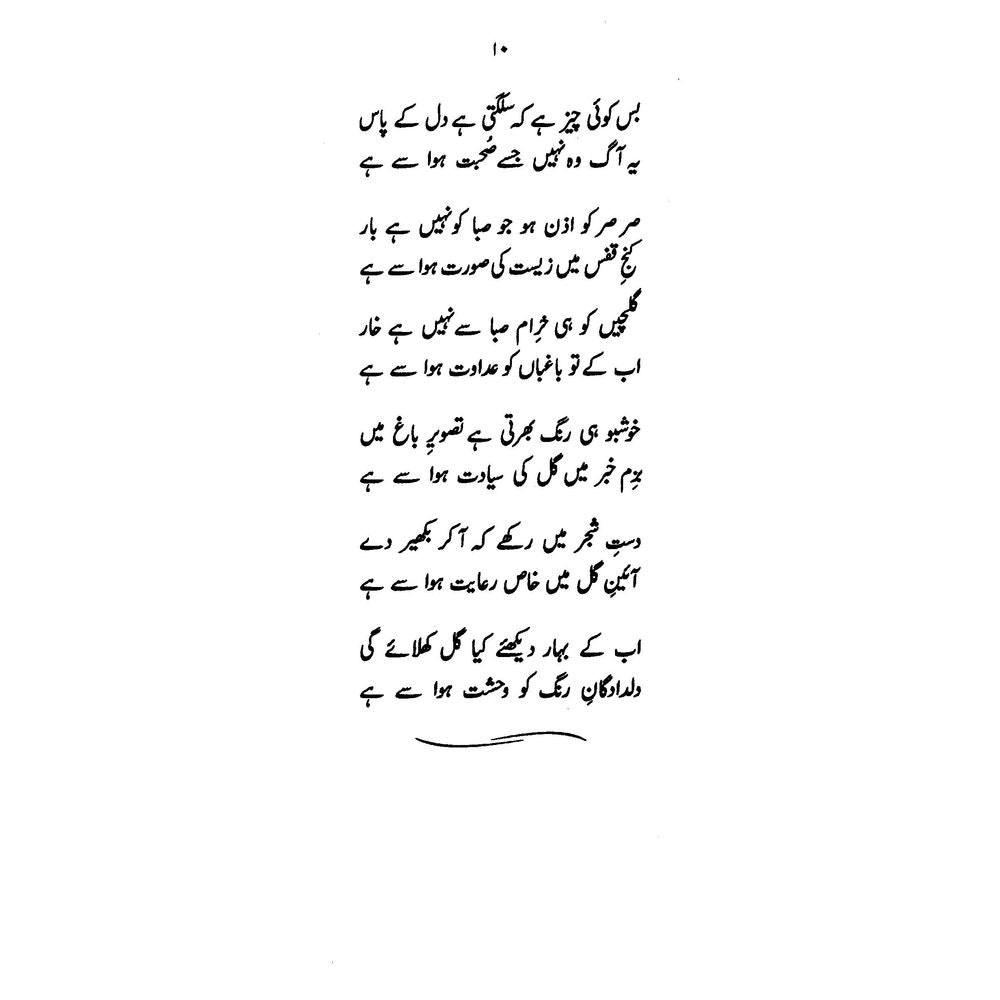 ۱۰
بس کوئی چیز ہے کہ سلگتی ہے دل کے پاس
یہ آگ وہ نہیں جسے صُحبت ہوا سے ہے
صرصر کو اذن ہو جو صبا کو نہیں ہے بار
کنجِ قفس میں زیست کی صورت ہوا سے ہے
گلچیں کو ہی خرامِ صبا سے نہیں ہے خار
اب کے تو باغباں کو عداوت ہوا سے ہے
خوشبو ہی رنگ بھرتی ہے تصویرِ باغ میں
بزمِ خبر میں گل کی سیادت ہوا سے ہے
دستِ شجر میں رکھے کہ آ کر بکھیر دے
آئینِ گل میں خاص رعایت ہوا سے ہے
اب کے بہار دیکھئے کیا گل کھلائے گی
دلدادگانِ رنگ کو وحشت ہوا سے ہے